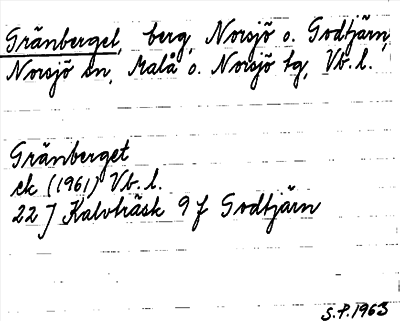 Gränberget, berg, Norsjö o. Godtjärn,
Norsjö sn, Malå o. Norsjö tg, Vb. l.
Gränberget
ek (1961) Vb. l.
22 J Kalvträsk 9 f Godtjärn
S.P. 1963